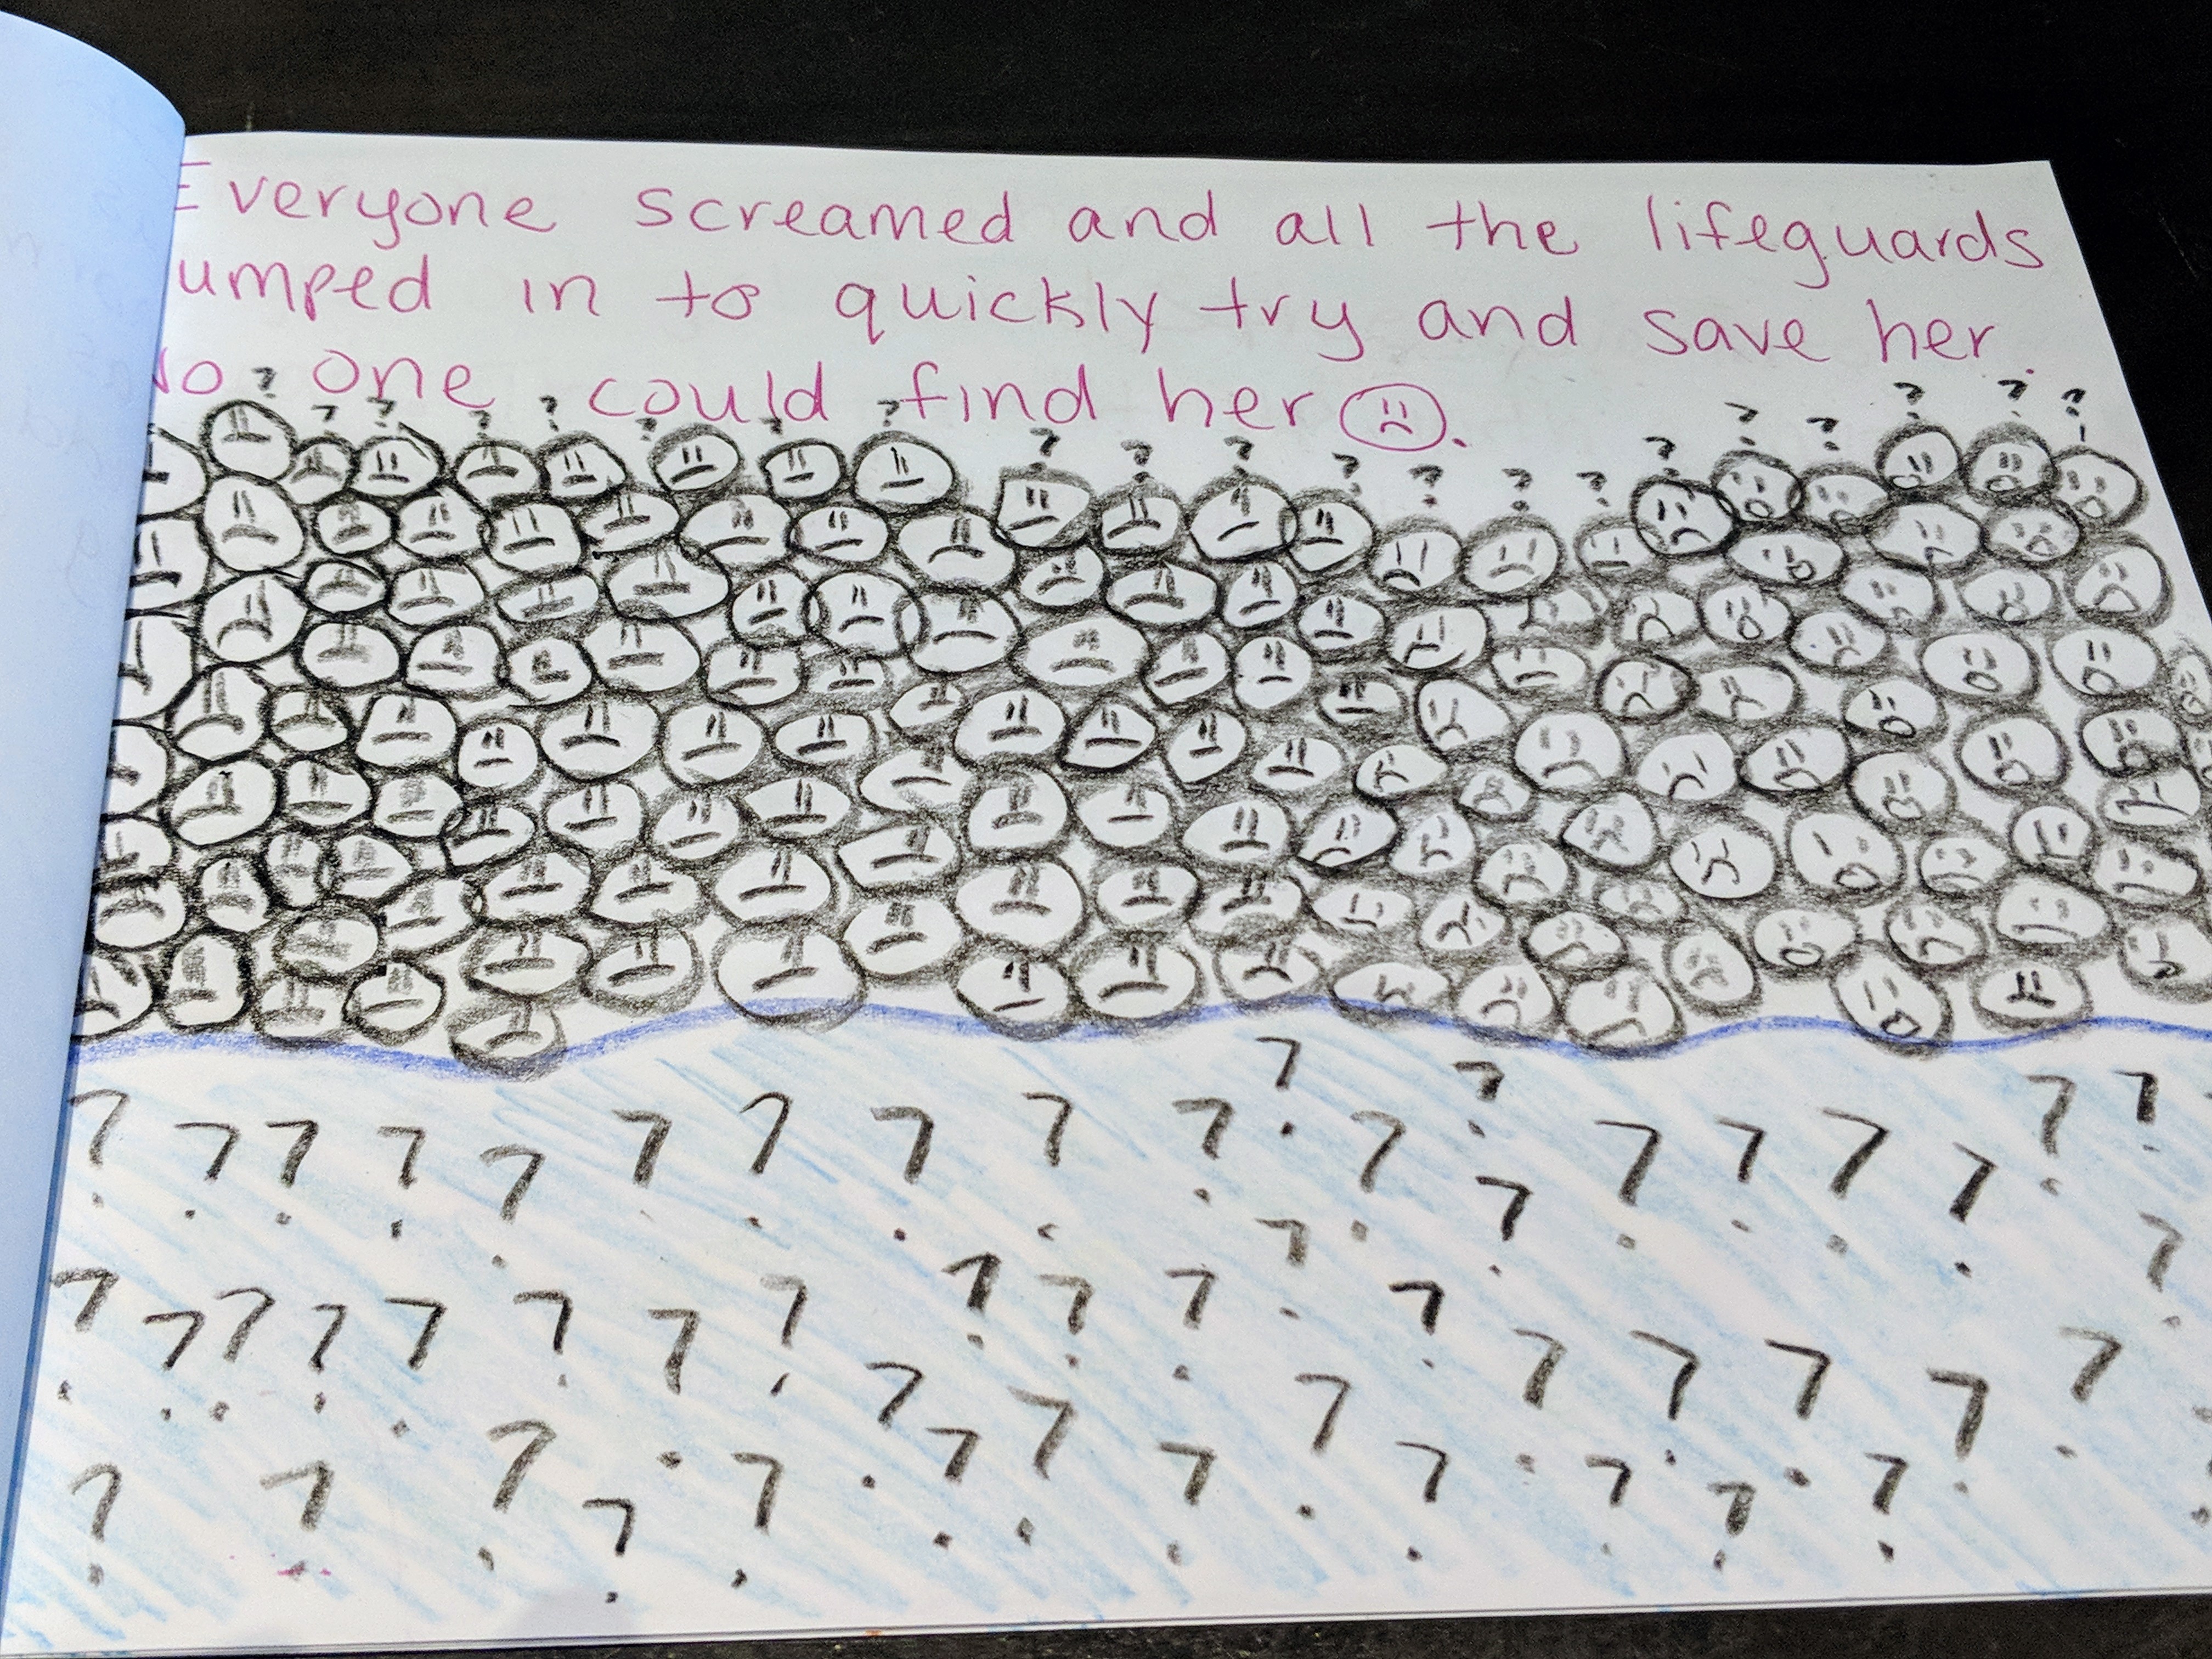 Everyone screamed and all the lifeguards
umped in to quickly try and save her.
No one could find her ☹.
? ? ? ? ? ? ? ? ? ? ? ? ? ? ? ? ? ? ? ? ? ?
? ? ? ? ? ? ? ? ? ? ? ? ? ? ? ? ? ? ?
? ? ? ? ? ? ? ? ? ? ? ? ? ? ? ? ? ? ? ?
? ? ? ? ? ? ? ? ? ? ? ? ? ?